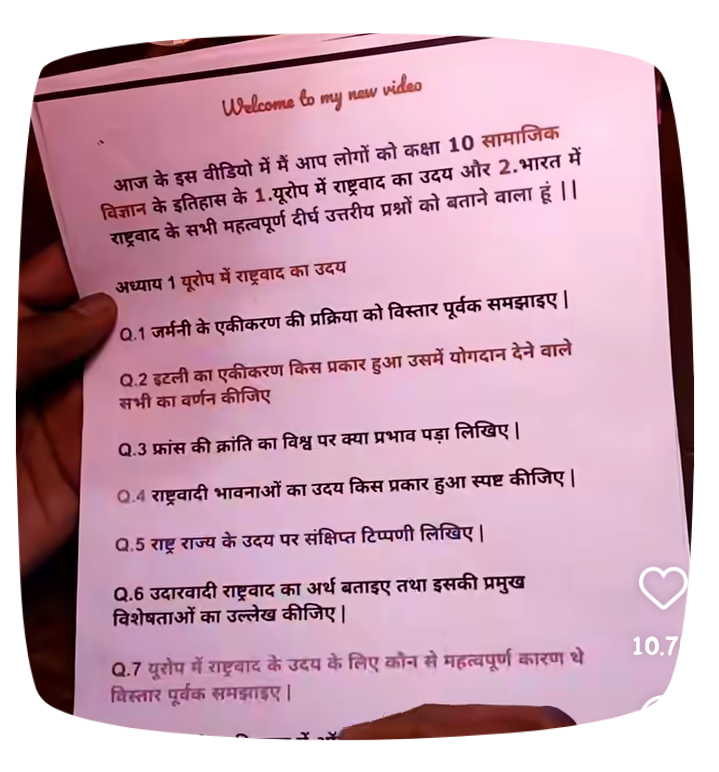 Welcome to my new video
आज के इस वीडियो में मैं आप लोगों को कक्षा 10 सामाजिक
विज्ञान के इतिहास के 1.यूरोप में राष्ट्रवाद का उदय और 2.भारत में
राष्ट्रवाद के सभी महत्वपूर्ण दीर्घ उत्तरीय प्रश्नों को बताने वाला हूं ||
अध्याय 1 यूरोप में राष्ट्रवाद का उदय
Q.1 जर्मनी के एकीकरण की प्रक्रिया को विस्तार पूर्वक समझाइए |
Q.2 इटली का एकीकरण किस प्रकार हुआ उसमें योगदान देने वाले
सभी का वर्णन कीजिए
Q.3 फ्रांस की क्रांति का विश्व पर क्या प्रभाव पड़ा लिखिए |
Q.4 राष्ट्रवादी भावनाओं का उदय किस प्रकार हुआ स्पष्ट कीजिए |
Q.5 राष्ट्र राज्य के उदय पर संक्षिप्त टिप्पणी लिखिए |
Q.6 उदारवादी राष्ट्रवाद का अर्थ बताइए तथा इसकी प्रमुख
विशेषताओं का उल्लेख कीजिए |
Q.7 यूरोप में राष्ट्रवाद के उदय के लिए कौन से महत्वपूर्ण कारण थे
विस्तार पूर्वक समझाइए |
10.7